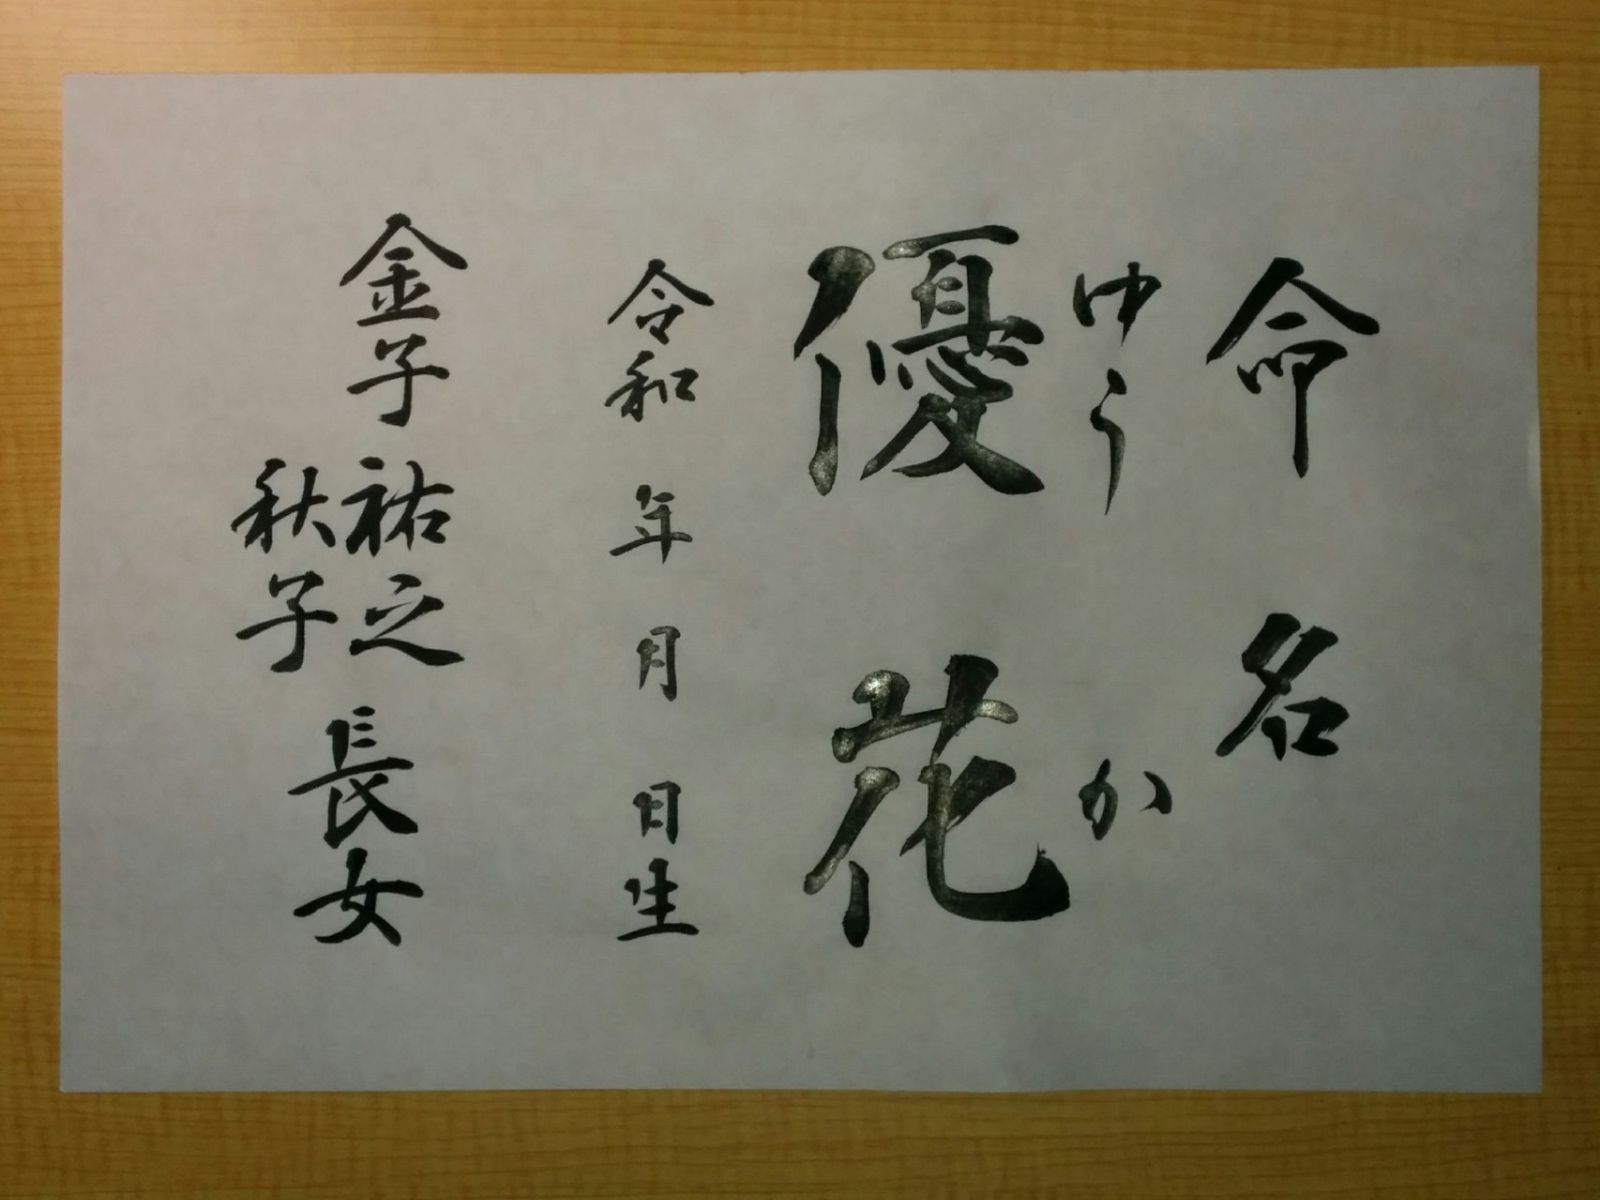 命名
ゆうか
優花
令和 年 月 日生
金子 祐之
秋子
長女